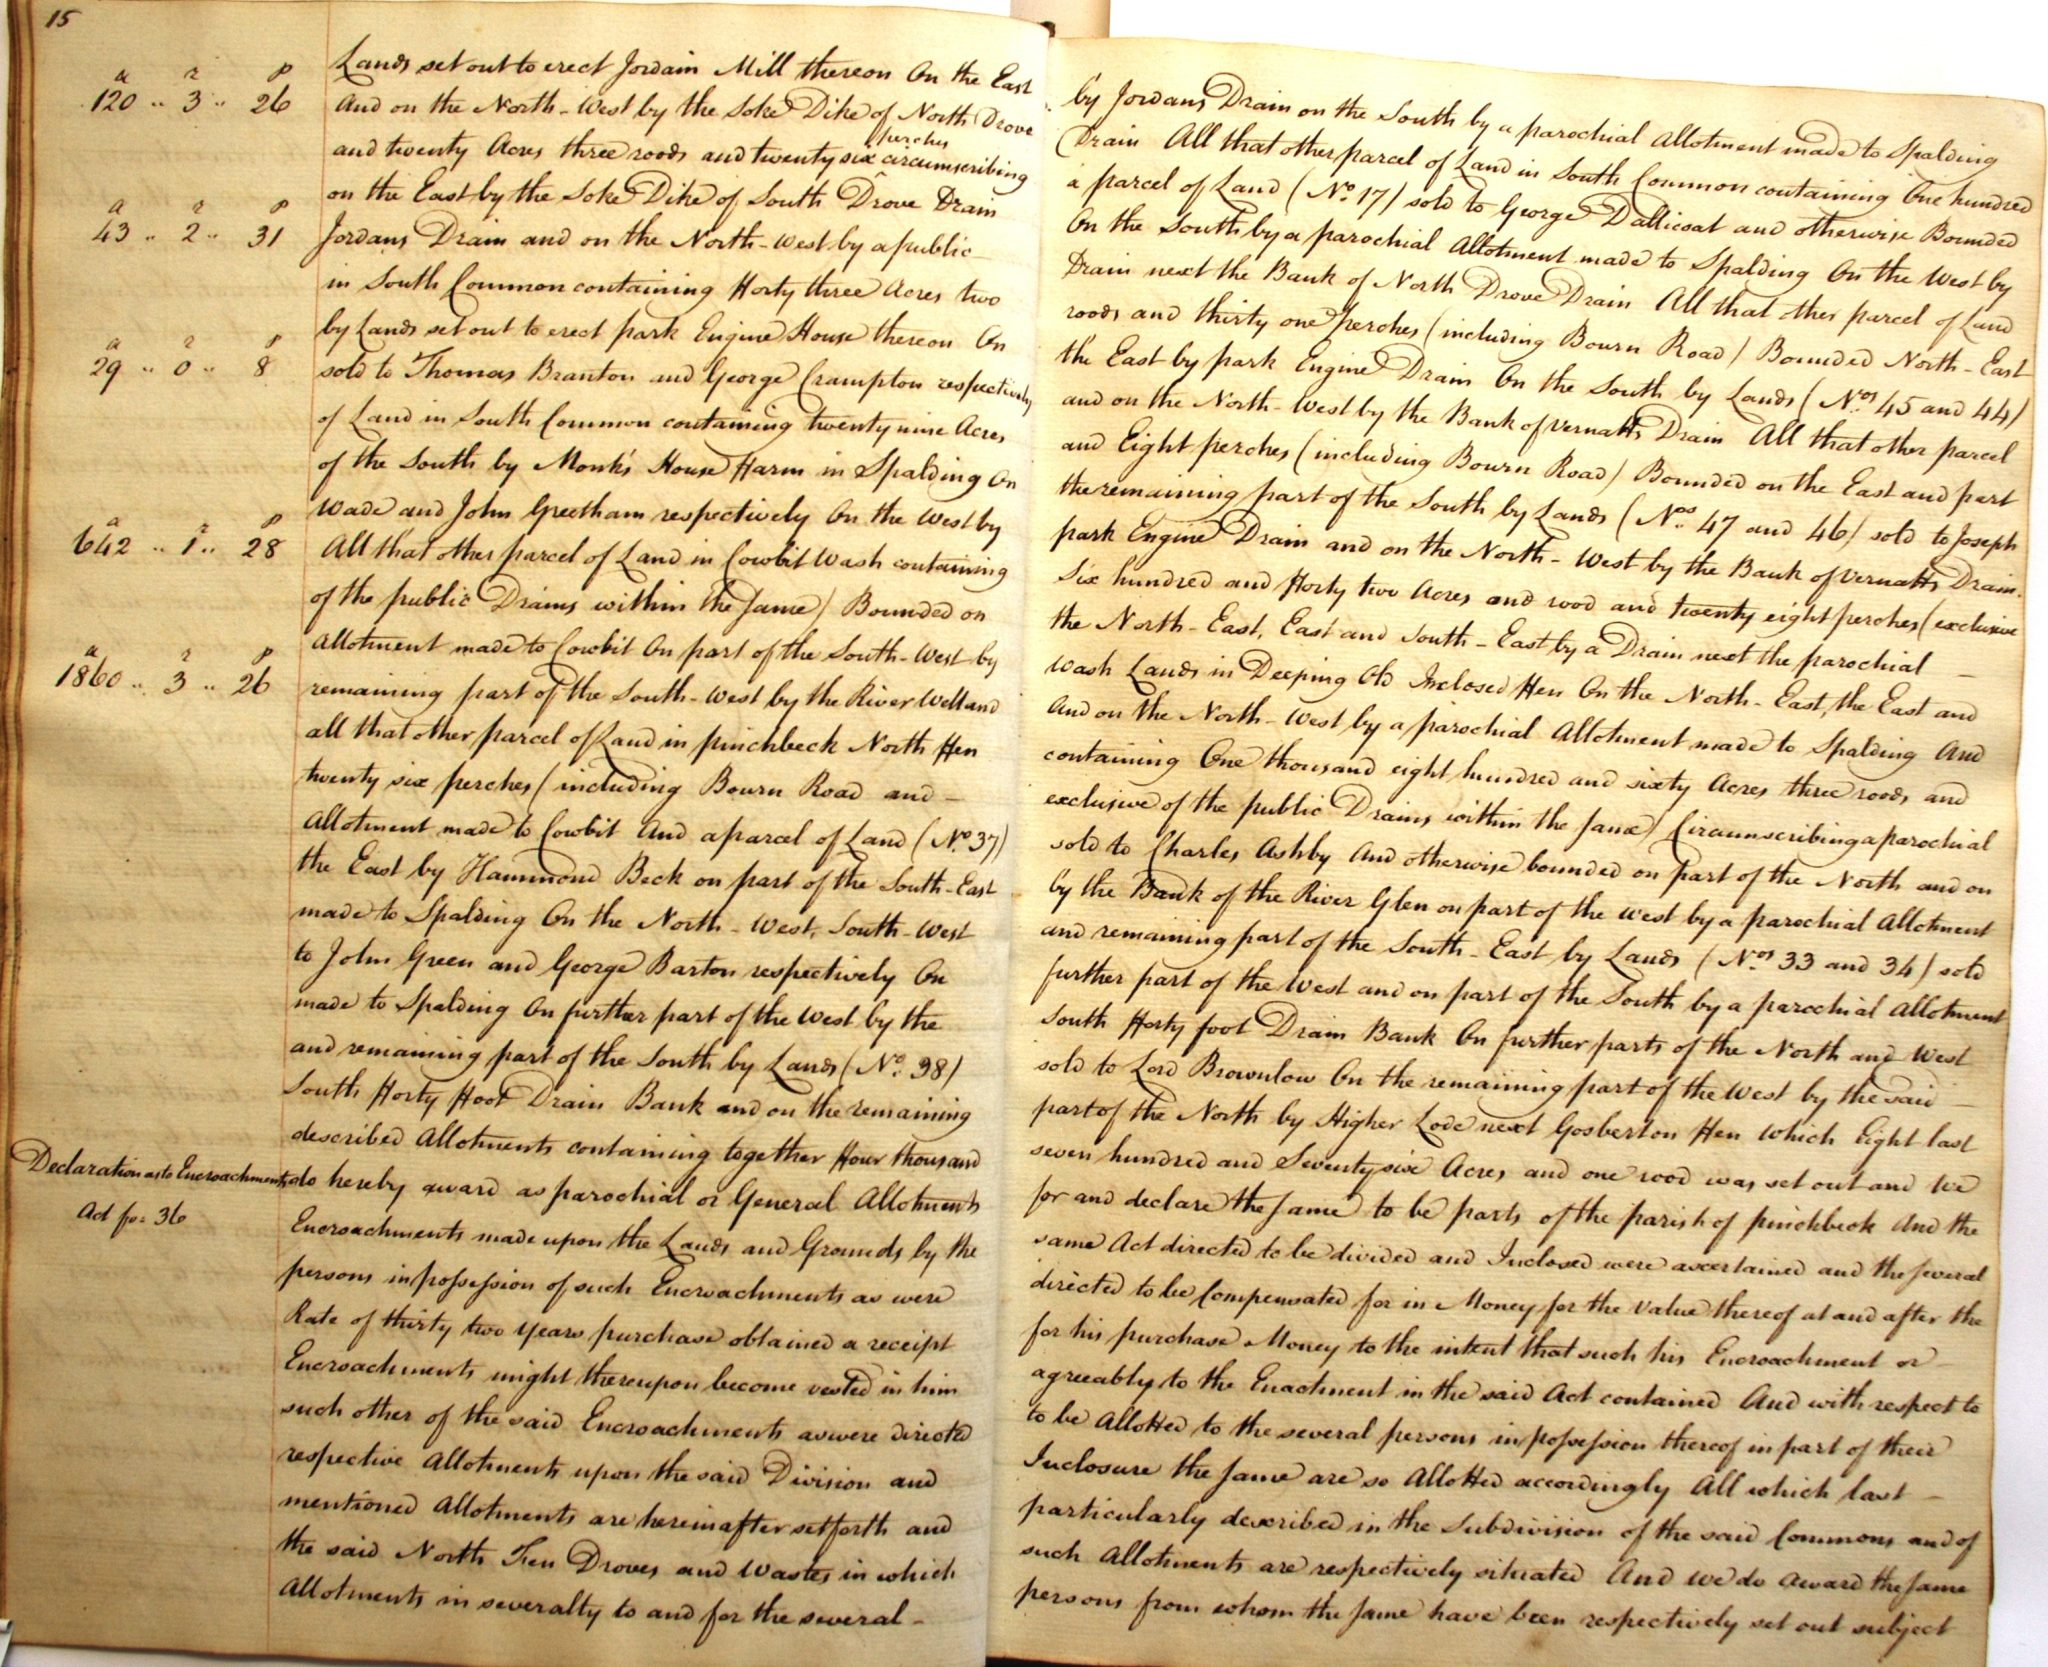 15
Lands set out to erect Jordain Mill thereon On the East by Jordans Drain on the South by a parochial Allotment made to Spalding
a r p
120 .. 3 .. 26
And on the North-West by the Soke Dike of North Drove Drain All that other parcel of Land in South Common containing One hundred
and twenty Acres three roods and twenty six perches circumscribing a parcel of Land (No 17) sold to George Dallicoat and otherwise Bounded
on the East by the Soke Dike of South Drove Drain On the South by a parochial Allotment made to Spalding On the West by
a r p
43 .. 2 .. 31
Jordans Drain and on the North-West by a public Drain next the Bank of North Drove Drain All that other parcel of Land
in South Common containing Forty three Acres two roods and thirty one perches (including Bourn Road) Bounded North-East
by Lands set out to erect park Engine House thereon On the East by park Engine Drain On the South by Lands (Nos 45 and 44)
a r p
29 .. 0 .. 8
sold to Thomas Branton and George Crampton respectively and on the North-West by the Bank of Vernatts Drain All that other parcel
of Land in South Common containing twenty nine Acres and Eight perches (including Bourn Road) Bounded on the East and part
of the South by Monk's House Farm in Spalding On the remaining part of the South by Lands (Nos 47 and 46) sold to Joseph
Wade and John Greetham respectively On the West by park Engine Drain and on the North-West by the Bank of Vernatts Drain.
a r p
642 .. 1 .. 28
All that other parcel of Land in Cowbit Wash containing Six hundred and Forty two Acres and rood and twenty eight perches (exclusive
of the public Drains within the same) Bounded on the North-East, East and South-East by a Drain next the parochial
Allotment made to Cowbit On part of the South-West by Wash Lands in Deeping Old Inclosed Fen On the North-East, the East and
a r p
1860 .. 3 .. 26
remaining part of the South-West by the River Welland And on the North-West by a parochial Allotment made to Spalding And
all that other parcel of Land in pinchbeck North Fen containing One thousand eight hundred and sixty Acres three roods and
twenty six perches (including Bourn Road and exclusive of the public Drains within the same) Circumscribing a parochial
Allotment made to Cowbit And a parcel of Land (No 37) sold to Charles Ashby And otherwise bounded on part of the North and on
the East by Hammond Beck on part of the South-East by the Bank of the River Glen on part of the West by a parochial Allotment
made to Spalding On the North-West, South-West and remaining part of the South-East by Lands (Nos 33 and 34) sold
to John Green and George Barton respectively On further part of the West and on part of the South by a parochial Allotment
made to Spalding On further part of the West by the South Forty foot Drain Bank On further parts of the North and West
and remaining part of the South by Lands (No 38) sold to Lord Brownlow On the remaining part of the West by the said
South Forty Foot Drain Bank and on the remaining part of the North by Higher Lode next Gosberton Fen Which Eight last
described Allotments containing together Four thousand seven hundred and Seventy six Acres and one rood was set out and We
Declaration as to Encroachments
do hereby award as parochial or General Allotments for and declare the same to be parts of the parish of pinchbeck And the
Act fo: 36
Encroachments made upon the Lands and Grounds by the same Act directed to be divided and Inclosed were ascertained and the several
persons in possession of such Encroachments as were directed to be Compensated for in Money for the value thereof at and after the
Rate of thirty two years purchase obtained a receipt for his purchase Money to the intent that such his Encroachment or
Encroachments might thereupon become vested in him agreeably to the Enactment in the said Act contained And with respect to
such other of the said Encroachments as were directed to be Allotted to the several persons in possession thereof in part of their
respective Allotments upon the said Division and Inclosure the same are so Allotted accordingly All which last
mentioned Allotments are hereinafter set forth and particularly described in the Subdivision of the said Commons and of
the said North Fen Droves and Wastes in which such Allotments are respectively situated And we do Award the same
Allotments in severalty to and for the several persons from whom the same have been respectively set out subject